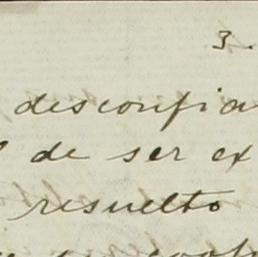 3.
desconfia
de ser ex
resuelto